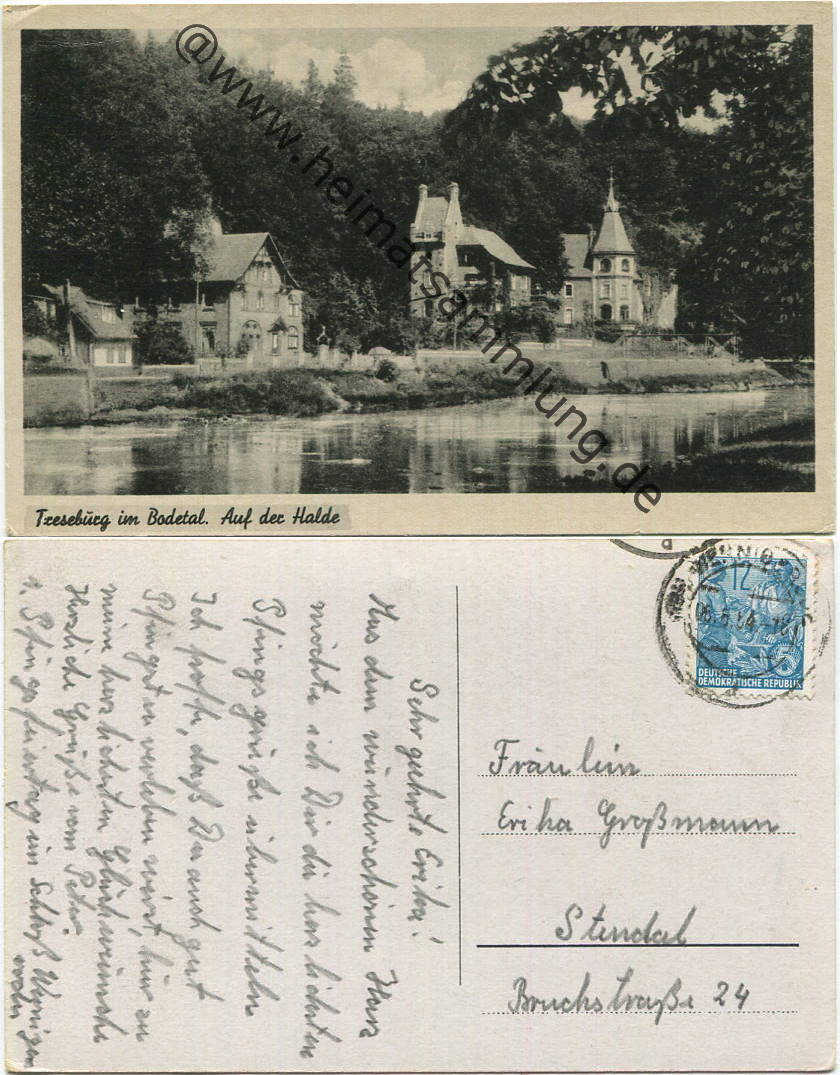 @www.heimatsammlung.de
Treseburg im Bodetal. Auf der Halde
Sehr geehrte Erika!
Aus dem wunderschönen Harz
möchte ich Dir die herzlichsten
Pfingsgrüße übermitteln
Ich hoffe, daß Du auch gut
Pfingsten verleben wirst, hier zu
meine herzlichsten Glückwünsche
Herzliche Grüße vom Peter.
1. Pfingsfeiertag im Schloß
12
DEUTSCHE
DEMOKRATISCHE REPUBLIK
Fräulein
Erika Großmann
Stendal
Bruchstraße 24